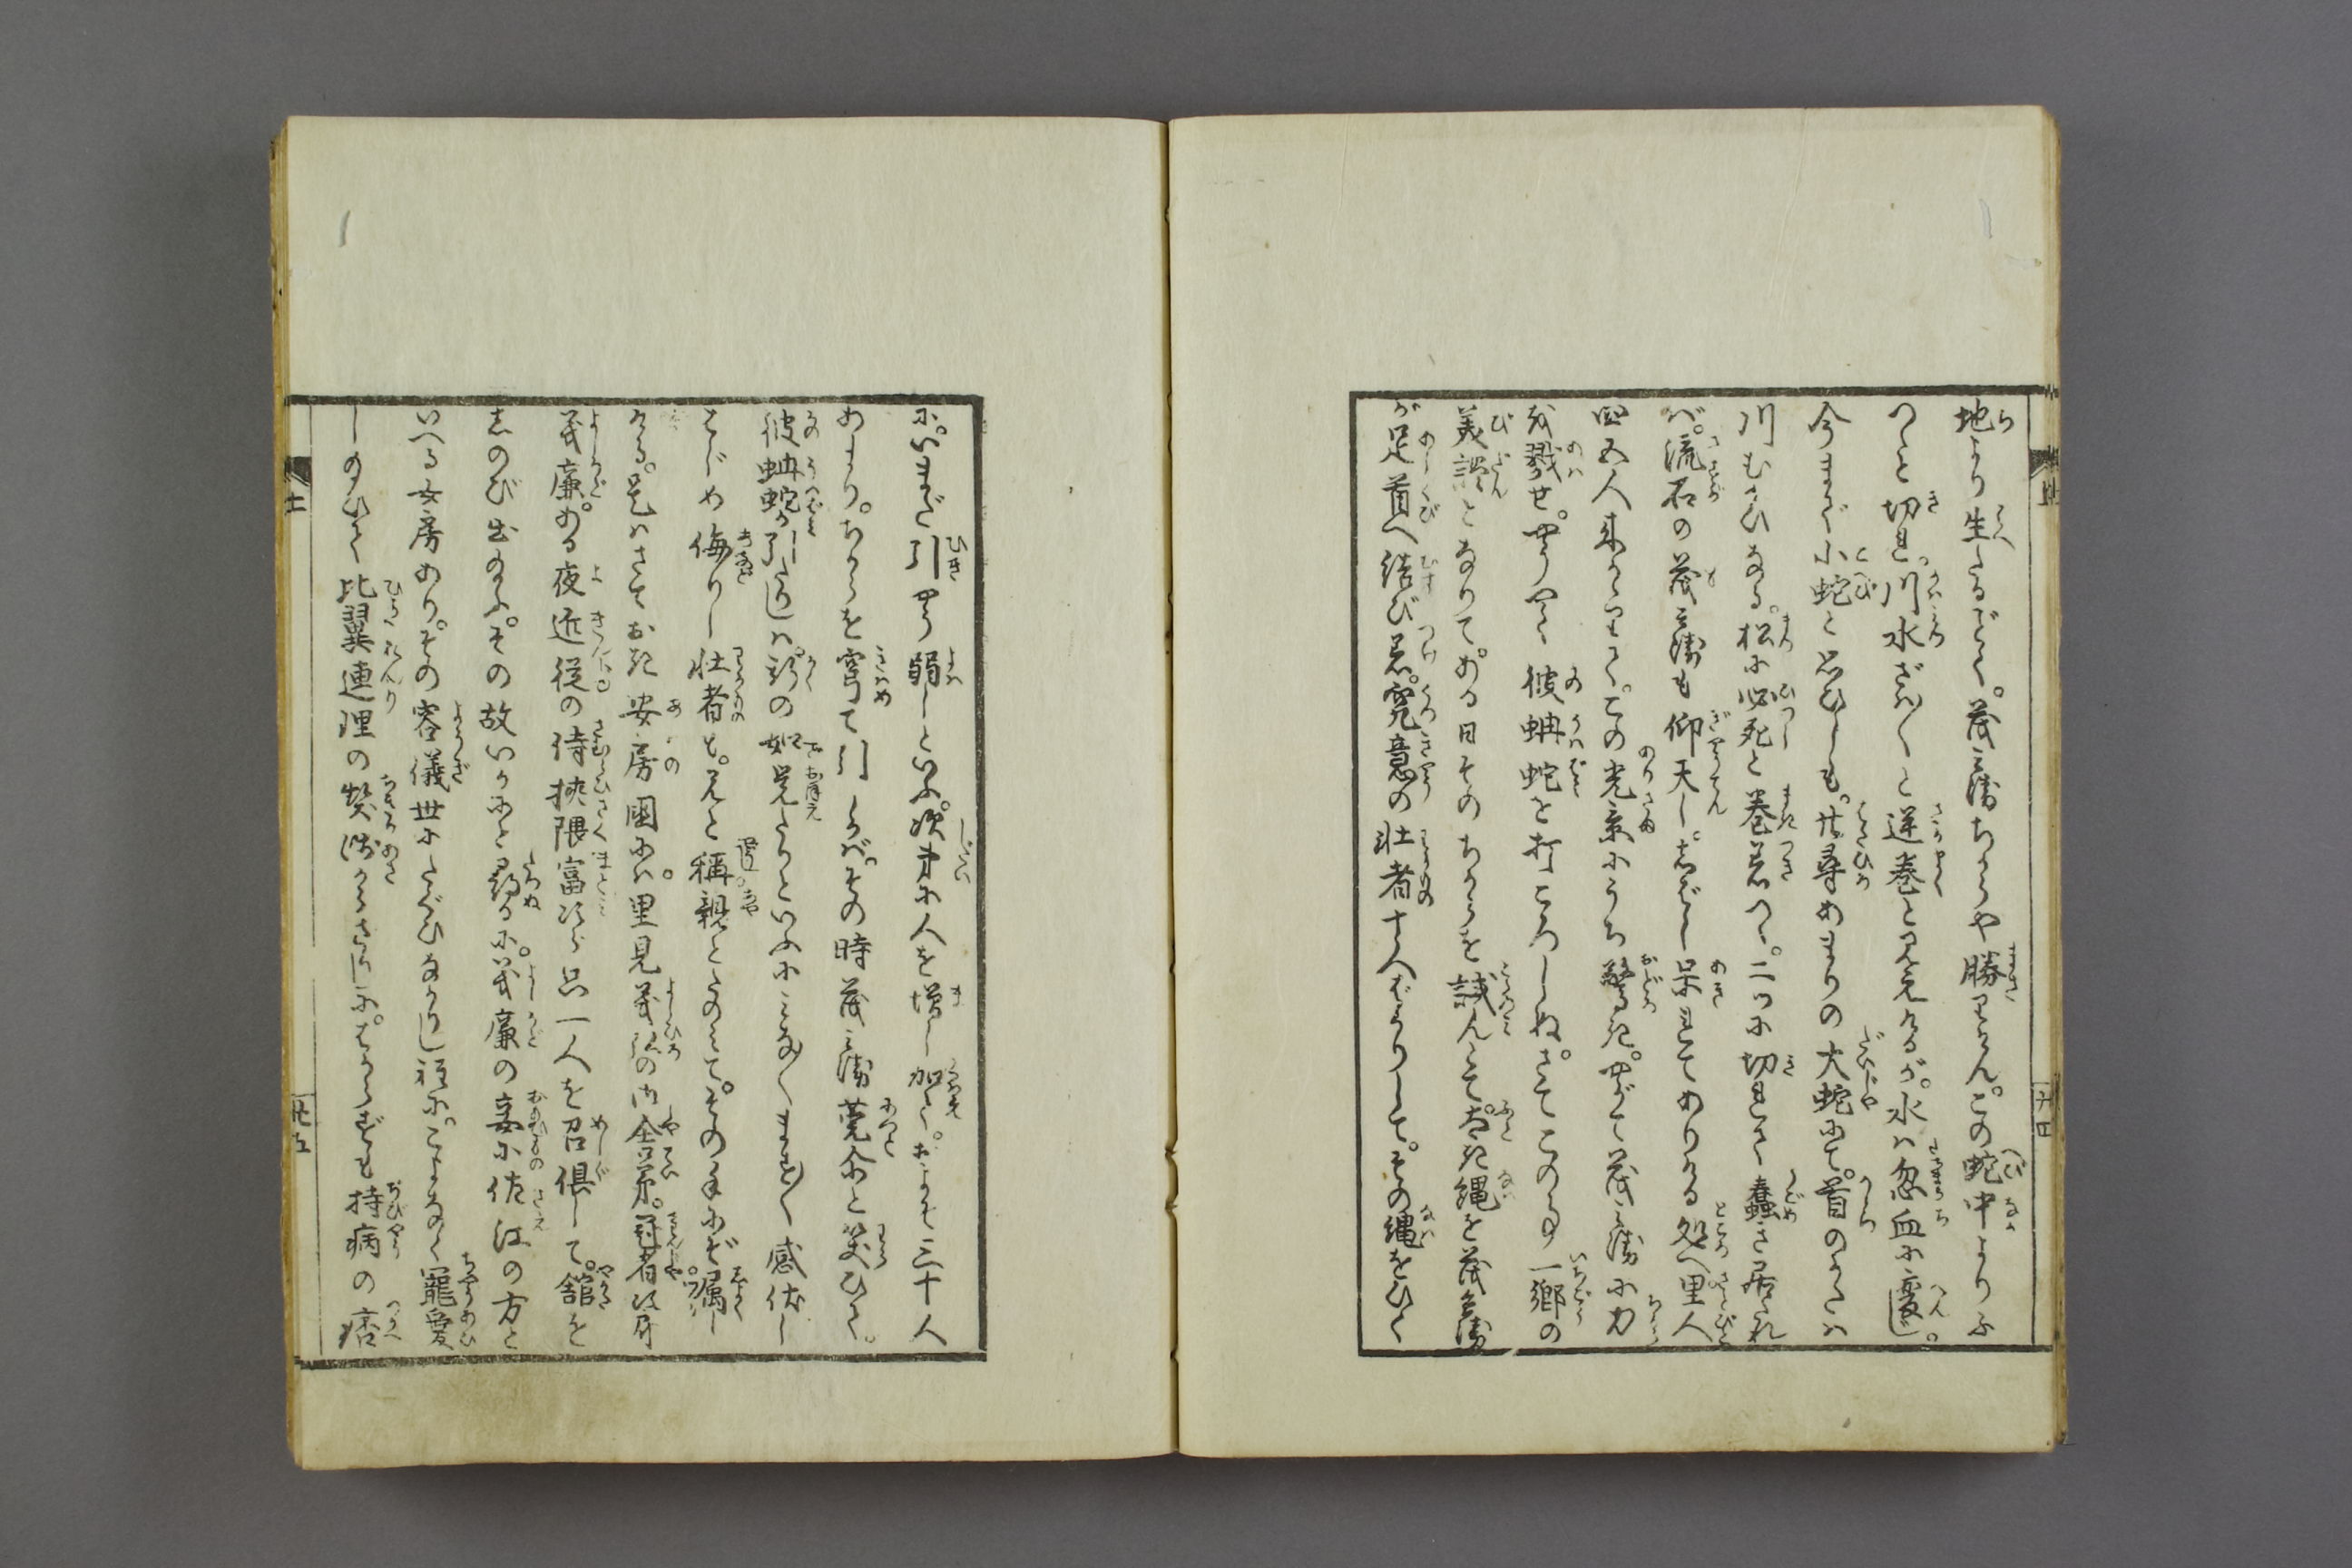 地より生たるごとく。茂三浦ちからや勝りけん。この蛇中よりふ
つと切れ。川水ざは〱と逆巻と見えけるが。水は忽血に変じ。
今まで小蛇と思ひしも。廿尋あまりの大蛇にて。首のかたは
川むかひなる。松に必死と巻着つゝ。二つに切れて蠢き居たれ
ば。流石の茂三浦も仰天し。しばし呆れてありける処へ里人
四五人来かゝりて。この光景にうち驚き。やがて茂三浦に力
を戮せ。やうやく彼蚺蛇を打ころしぬ。さてこの事一郷の
美談となりて。ある日そのちからを試んとて。太き縄を茂三浦
が足首へ結び着。究竟の壮者十人ばかりして。その縄をひく
に。いまだ引やう弱しといふ。次第に人を増し加て。およそ三十人
あまり。ちからを窮て引しかば。その時茂三浦莞尓と笑ひて。
彼蚺蛇が引たりしは。斯の如覚たりといふにみな〱ます〱感伏し
はじめ侮りし壮者も。兄と称親とたのみて。その手にぞ属し
ける。是はさておき安房国には。里見義弘の内舎弟。冠者次郎
義廉。ある夜近従の侍挾隈富次ら只一人を召倶して。舘を
しのび出給ふ。その故いかにと尋るに。義廉の妾に佐江の方と
いへる女房あり。その容儀世にたぐひなかりし程に。こよなく寵愛
し給ひて比翼連理の契浅からざりしに。はからずも持病の痞